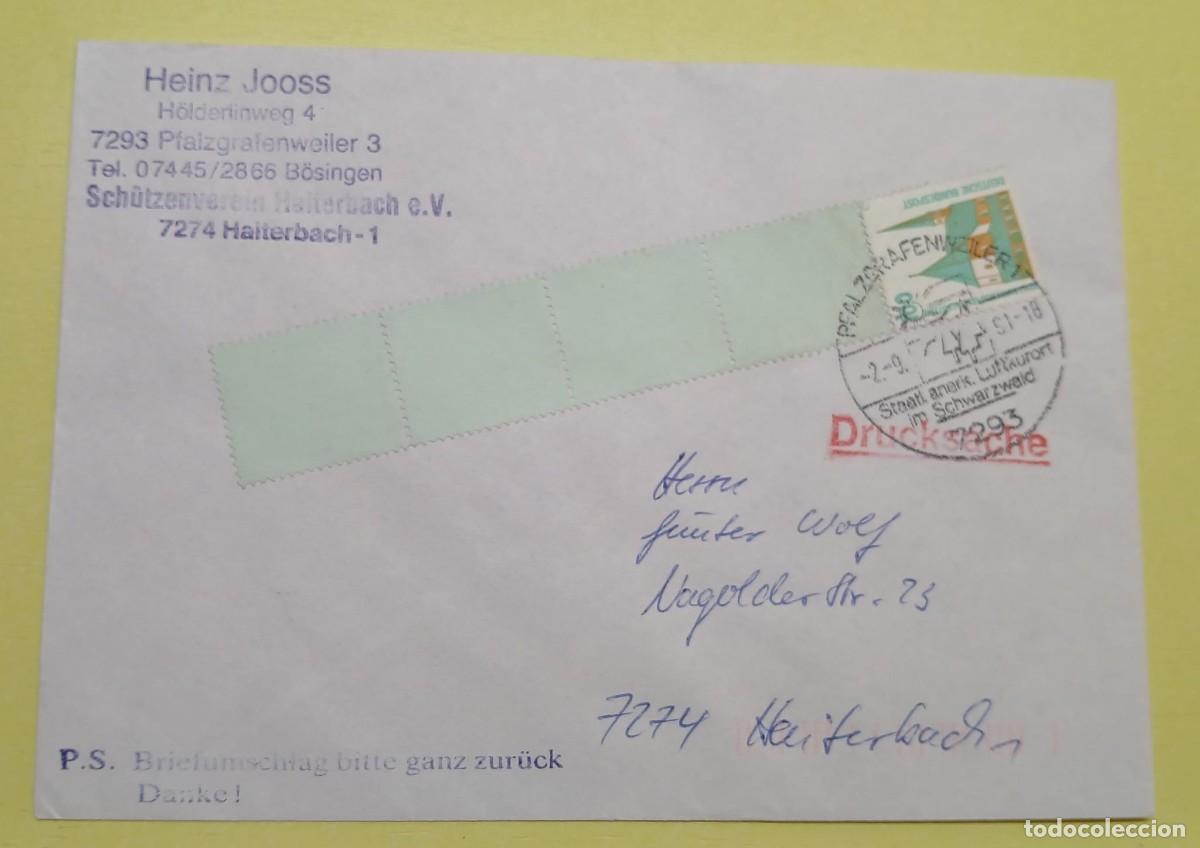 Heinz Jooss
Hölderlinweg 4
7293 Pfalzgrafenweiler 3
Tel. 07445/2866 Bösingen
Schützenverein Haiterbach e.V.
7274 Haiterbach-1
DEUTSCHE BUNDESPOST
PFALZGRAFENWEILER 1
-2.-9. 91-18
Staatl. anerk. Luftkurort
im Schwarzwald
7293
Drucksache
Herrn
Günter Wolf
Nagolder Str. 23
7274 Haiterbach 1
P.S. Briefumschlag bitte ganz zurück
Danke!
todocoleccion